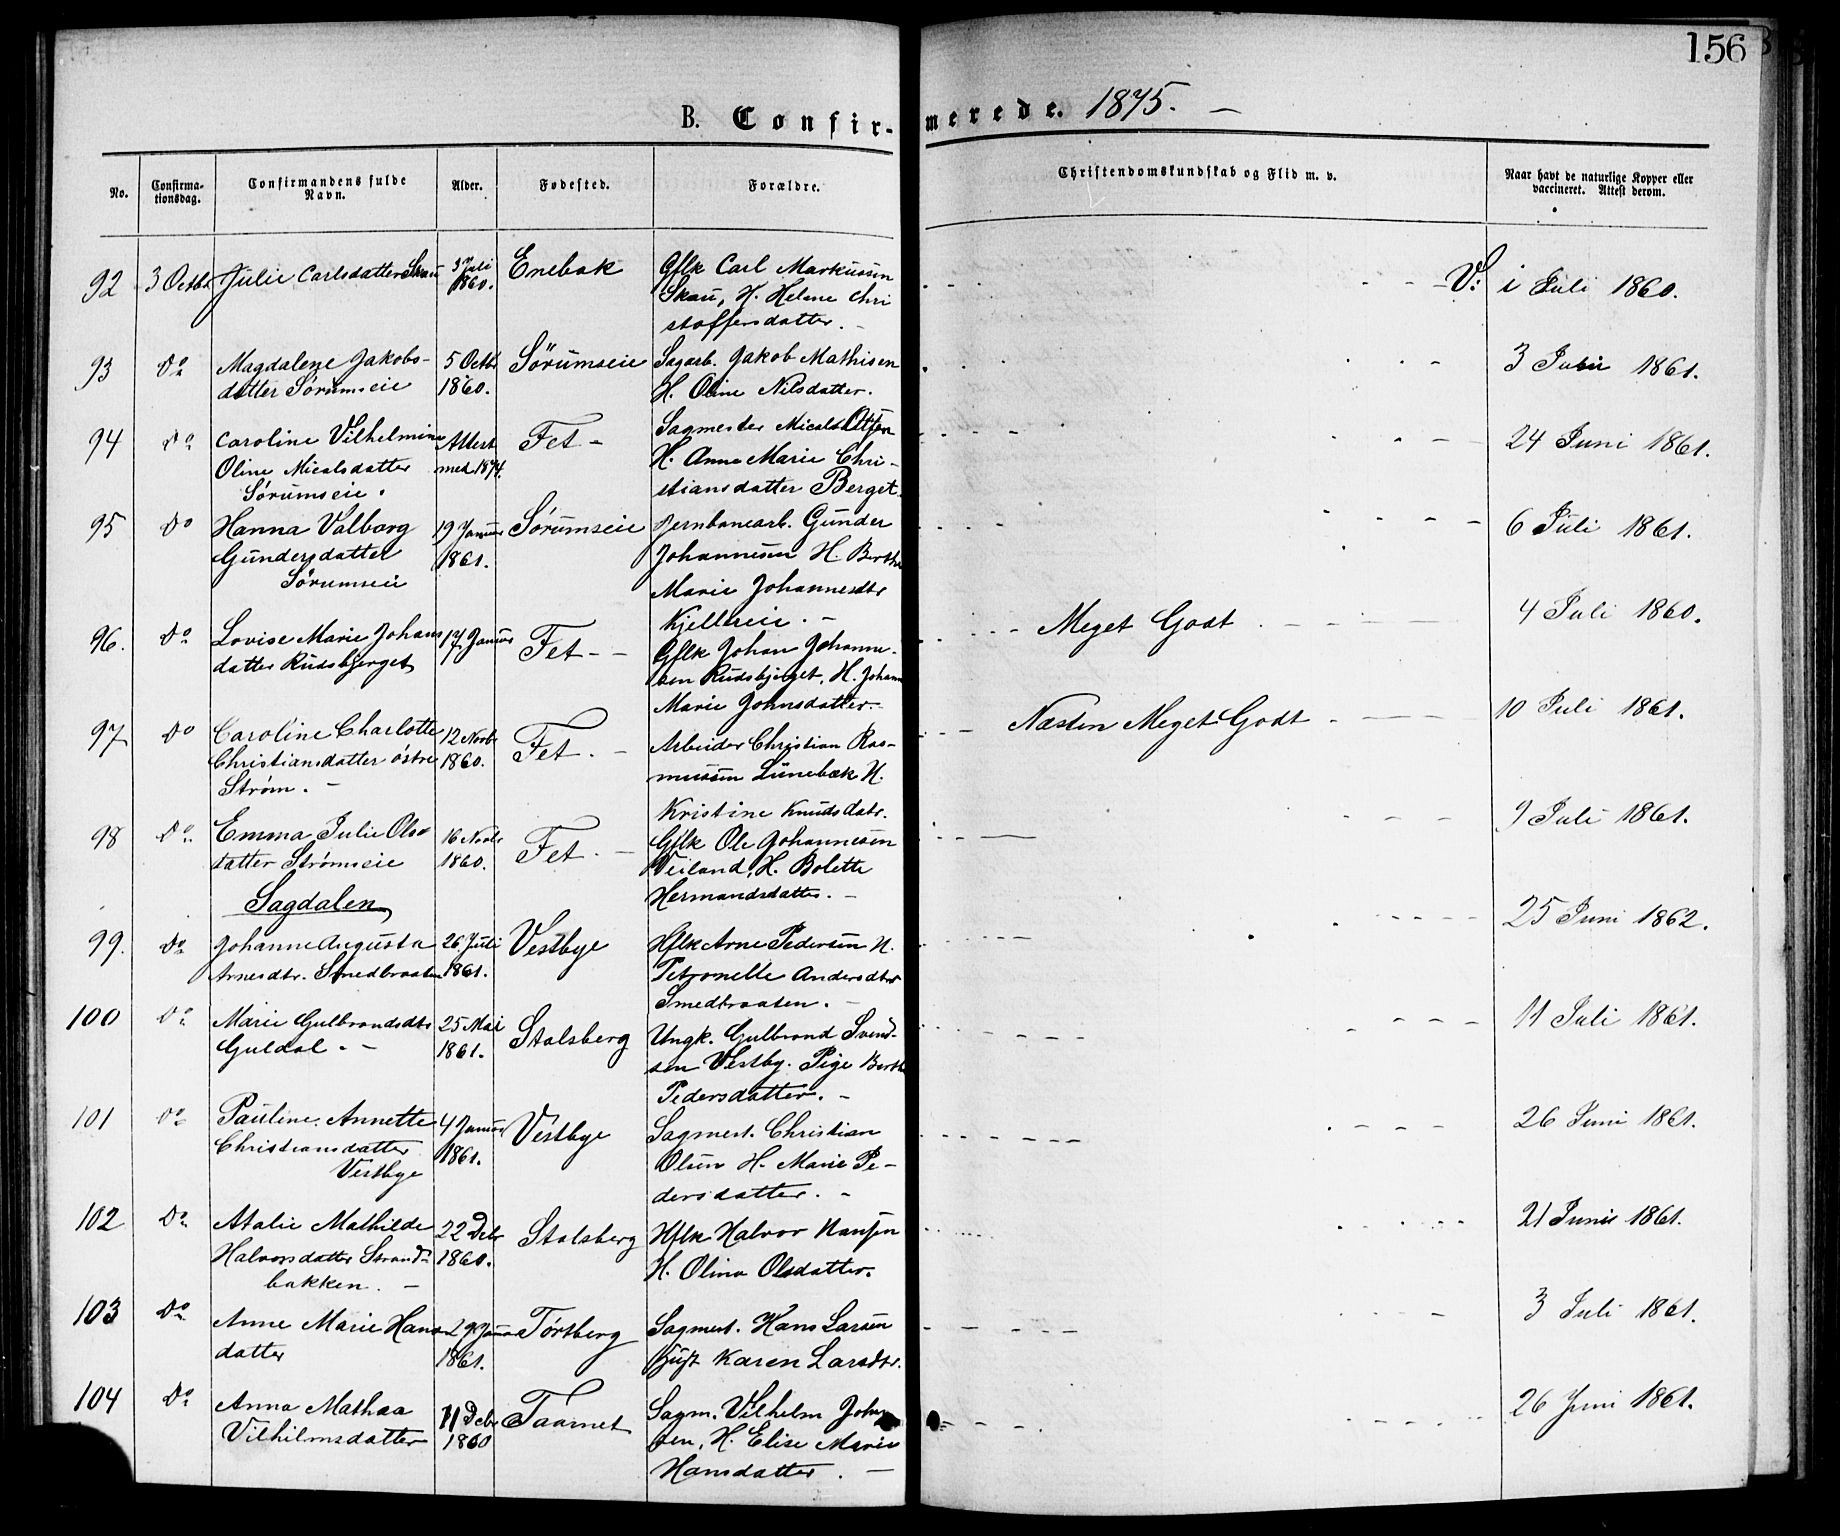 156
B. Confir-
merede. 1875. -
No.
Confirma-
tionsdag.
Confirmandens fulde
Navn.
Alder.
Fødested.
Forældre.
Christendomskundskab og Flid m. v.
Naar havt de naturlige Kopper eller
vaccineret. Attest derom.
92 3 Octbr Julie Carlsdatter Skau 3 Juli 1860. Enebak Gflk Carl Markussen V: i Juli 1860.
Skau, H. Helene Chri
stoffersdatter. -
93 Do Magdalene Jakobs- 5 Octbr Sörumseie Sagarb. Jakob Mathisen 3 Juni 1861.
datter Sørumseie 1860. H. Oline Nilsdatter.
94 Do Caroline Vilhelmine Attest Fet - Sagmester Micael Ottesen 24 Juni 1861.
Oline Micalsdatter med 1874. H. Anne Marie Chri-
Sørumseie. stiansdatter Berget.
95 Do Hanna Valborg 19 Januar Sørumseie Jernbanearb. Gunder 6 Juli 1861.
Gundersdatter 1861. Johannesen H. Berthe
Sørumseie Marie Johannesdtr
Kjelleeie. -
96. Do Lovise Marie Johans 17 Januar Fet - - Gflk Johan Johanne- Meget Godt 4 Juli 1860.
datter Rudsbjerget sen Rudsbjerget, H. Johann
Marie Johnsdatter.
97 Do Caroline Charlotte 12 Novbr Fet. - Arbeider Christian Ras- Næsten Meget Godt 10 Juli 1861.
Christiansdatter østre 1860. mussen Lünebæk H.
Strøm. - Kristine Knudsdatr.
98 Do Emma Julie Ols- 16 Novbr Fet. - Gflk Ole Johannesen 9 Juli 1861.
datter Strømseie 1860. Veiland, H. Bolette
Hermandsdatter. -
Sagdalen
99. Do Johanne Augusta 26 Juli Vestbye Hflk Arne Pedersen H. 25 Juni 1862.
Arnesdtr. Smedbraaten 1861. Petronelle Andersdtr
Smedbraaten. -
100 Do Marie Gulbrandsdtr 25 Mai Stalsberg Ungk. Gulbrand Svend- 11 Juli 1861.
Guldal. - 1861. sen Vestby. Pige Berthe
Pedersdatter. -
101 Do Pauline Annette 4 Januar Vestbye Sagmest. Christian 26 Juni 1861.
Christiansdatter 1861. Olsen H. Marie Pe-
Vestbye dersdatter. -
102 Do Atalie Mathilde 22 Debr Stalsberg Hflk Halvor Hansen 21 Juni 1861.
Halvorsdatter Strand- 1860. H. Olina Olsdatter.
bakken. -
103 Do Anne Marie Hans 29 Janua Törtberg Sagmest. Hans Larsen 3 Juli 1861.
datter 1861. Karen Larsdtr.
104 Do Anna Mathea 11 Debr Taarnet Sagm. Vilhelm Johan 26 Juni 1861.
Vilhelmsdatter 1860 sen, H. Elise Marie
Hansdatter. -